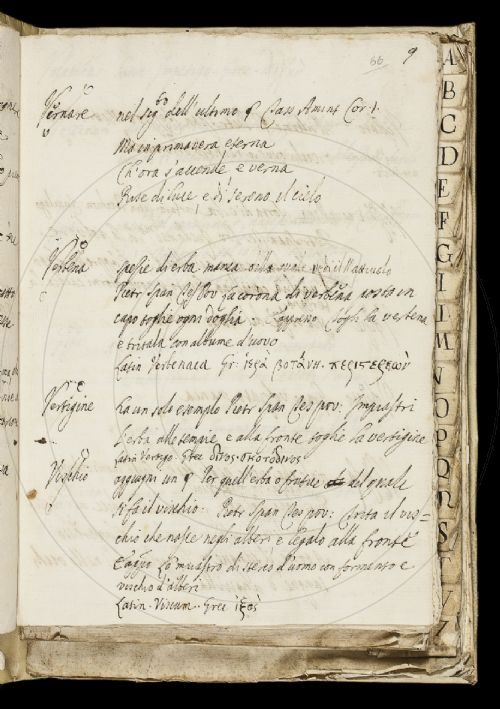 66 9
Vernare nel sig.to dell'ultimo Tass Amint Cor. 1.
Ma in primavera eterna
Ch'ora s'accende e verna
Rise di luce, e di sereno il cielo
Verbena spezie di erba
Pietr Span Tes Pov La corona di verbena posta in
capo toglie ogni doglia. Togli la verbena
e tritala con albume d'uovo
Latin Verbenaca Gr. ἱερὰ βοτάνη. περιστερεών
Vertigine Ha un solo esempio Pietr Span Tes pov: Impiastri
l'erba alle tempie, e alla fronte toglie la vertigine
Latin Vertigo. Grec δῖνος. σκοτόδινος
Vischio aggiugni un Per quell'erba o frutice del quale
si fa il vischio. Pietr Span Tes pov: Trita il vis=
chio che nasce negli alberi e legalo alla fronte
E appo Lo impiastro di sterco d'uomo con formento e
vischio d'alberi
Latin. Viscum. Grec ἰξός
A
B
C
D
E
F
G
H
I
L
M
N
O
P
Q
R
S
T
V
Z